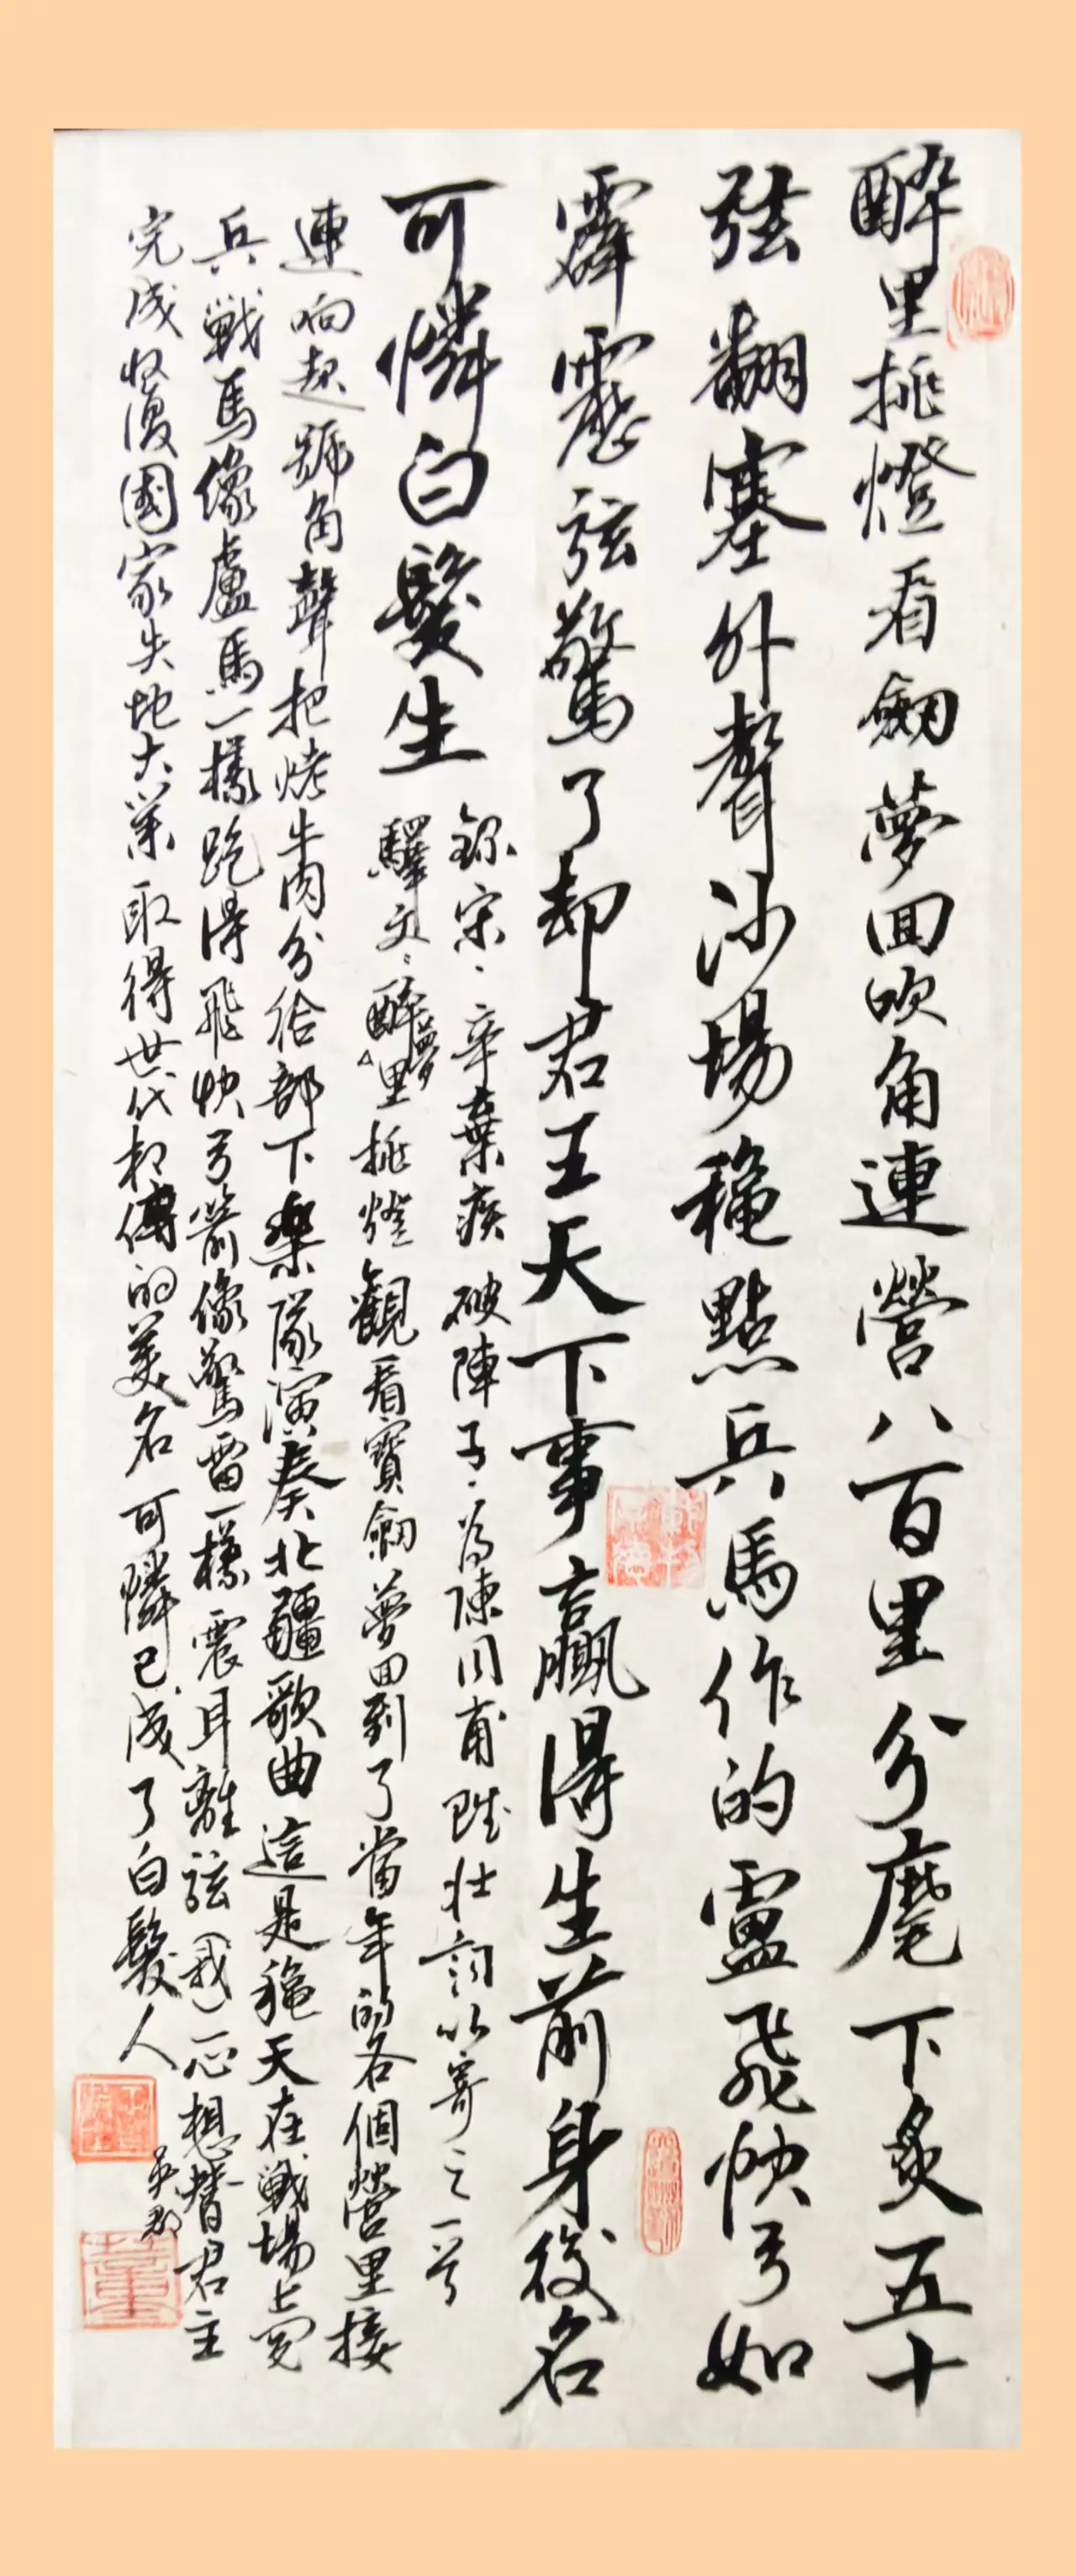 醉里挑燈看劒夢回吹角連營八百里分麾下炙五十
弦翻塞外聲沙場穐點兵馬作的盧飛快弓如
霹靂弦驚了却君王天下事贏得生前身後名
可憐白髮生
錄宋辛棄疾破陣子為陳同甫賦壯詞以寄之一首
驛文醉夢里挑燈觀看寶劒夢回到了當年的各個營里接
連响起號角聲把烤牛肉分给部下樂隊演奏北疆歌曲這是穐天在戰場上閱
兵戰馬像盧馬一樣跑得飛快弓箭像驚雷一樣震耳離弦(我)一心想替君主
完成收復國家失地大業取得世代相傳的美名可憐已成了白髮人
吳郡